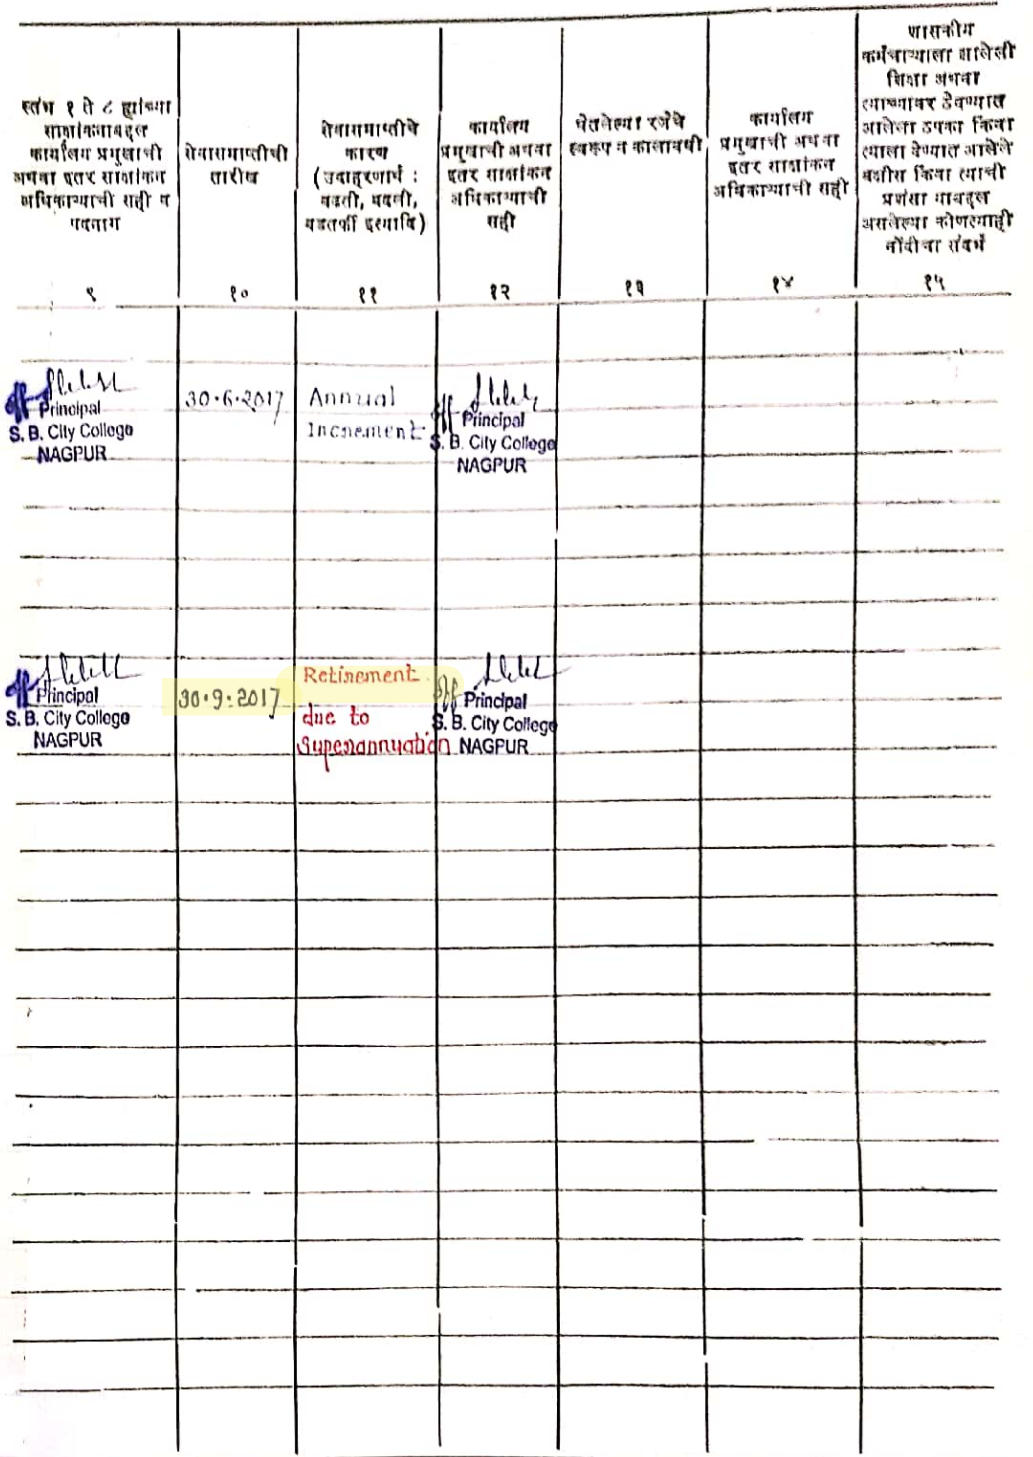 स्तंभ १ ते ८ ह्यांच्या
साक्षांकनाबद्दल
कार्यालय प्रमुखाची
अथवा इतर साक्षांकन
अधिकाऱ्याची सही व
पदनाम
९
सेवासमाप्तीची
तारीख
१०
सेवासमाप्तीचे
कारण
(उदाहरणार्थ :
बढती, बदली,
बडतर्फी इत्यादि)
११
कार्यालय
प्रमुखाची अथवा
इतर साक्षांकन
अधिकाऱ्याची
सही
१२
घेतलेल्या रजेचे
स्वरूप व कालावधी
१३
कार्यालय
प्रमुखाची अथवा
इतर साक्षांकन
अधिकाऱ्याची सही
१४
शासकीय
कर्मचाऱ्याला झालेली
शिक्षा अथवा
त्याच्यावर ठेवण्यात
आलेला ठपका किंवा
त्याला देण्यात आलेले
बक्षीस किंवा त्याची
प्रशंसा याबद्दल
असलेल्या कोणत्याही
नोंदीचा संदर्भ
१५
Principal
S. B. City College
NAGPUR
30.6.2017
Annual
Increment
Principal
S. B. City College
NAGPUR
Principal
S. B. City College
NAGPUR
30.9.2017
Retirement
due to
Superannuation
Principal
S. B. City College
NAGPUR